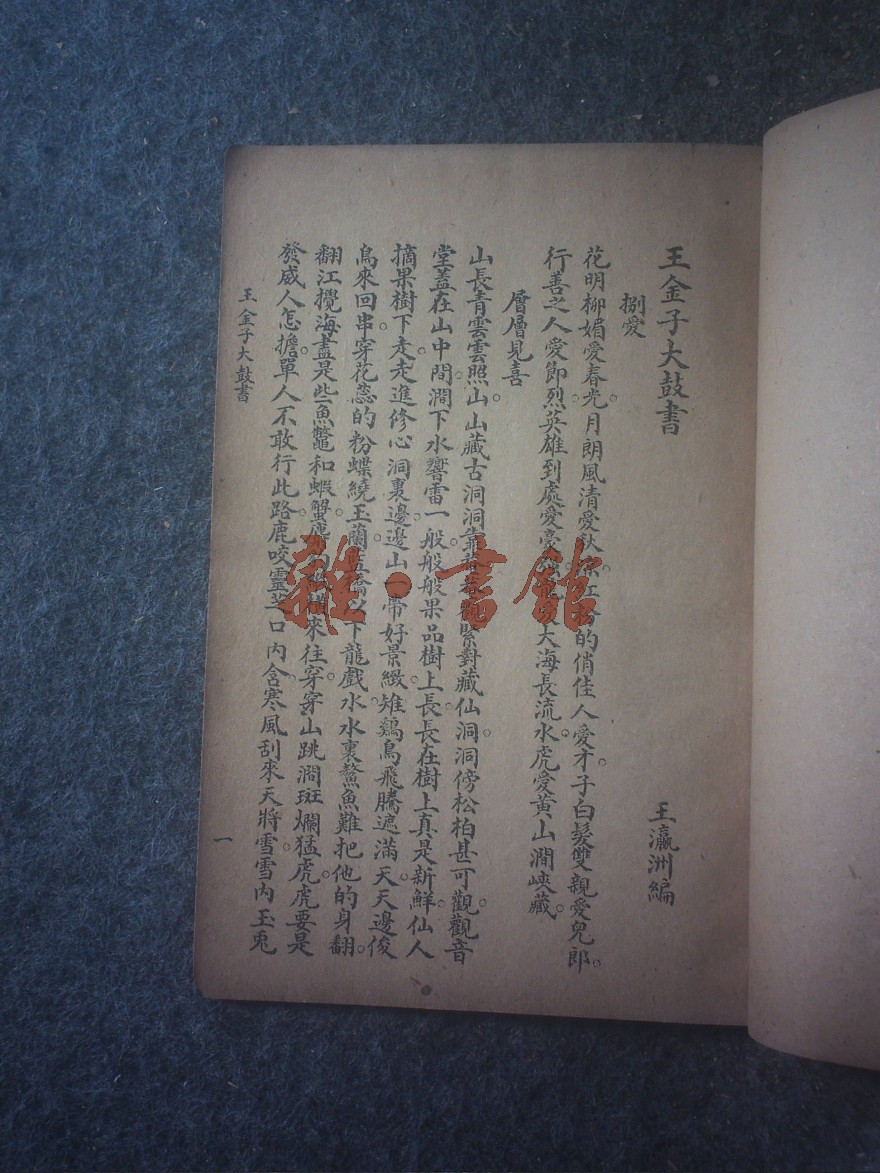 王金子大鼓書
王瀛洲編
捌愛
花明柳媚愛春光。月朗風清愛秋 的俏佳人愛才子。白髮雙親愛兒郎。
行善之人愛節烈。英雄到處愛豪 大海長流水。虎愛黃山澗峽藏。
層層見喜
山長青雲雲照山。山藏古洞洞靠 緊對藏仙洞。洞傍松柏甚可觀。觀音
堂蓋在山中間。澗下水響雷一般。般般果品樹上長。長在樹上真是新鮮。仙人
摘果樹下走。走進修心洞裏邊。邊山一帶好景緻。雉鷄鳥飛騰遮滿天。天邊俊
鳥來回串。穿花蕊的粉蝶繞玉蘭。藍橋以下龍戲水。水裏鰲魚難把他的身翻。
翻江攪海盡是些魚鼈和蝦蟹。 來往穿。穿山跳澗斑斕猛虎。虎要是
發威人怎擔。單人不敢行此路。鹿咬靈芝口內含。寒風刮來天將雪。雪內玉兎
王金子大鼓書
一
雜·書館